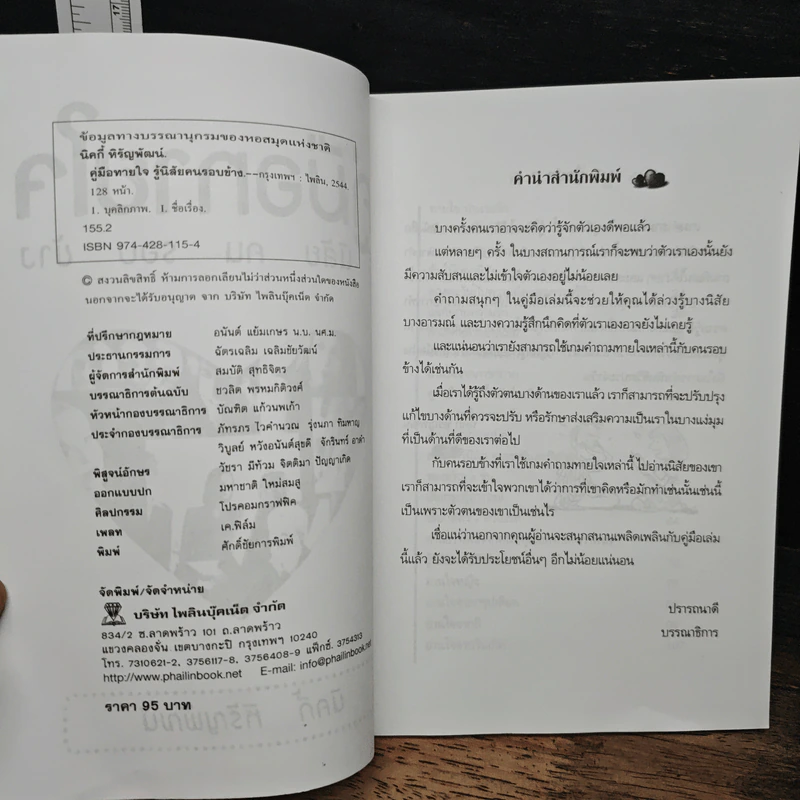 17
ข้อมูลทางบรรณานุกรมของหอสมุดแห่งชาติ
นิคกี้ หิรัญพัฒน์.
คู่มือทายใจ รู้นิสัยคนรอบข้าง.--กรุงเทพฯ : ไพลิน, 2544.
128 หน้า.
1. บุคลิกภาพ. I. ชื่อเรื่อง.
155.2
ISBN 974-428-115-4
© สงวนลิขสิทธิ์ ห้ามการลอกเลียนไม่ว่าส่วนหนึ่งส่วนใดของหนังสือ
นอกจากจะได้รับอนุญาต จาก บริษัท ไพลินบุ๊คเน็ต จำกัด
ที่ปรึกษากฎหมาย อนันต์ แย้มเกษร น.บ. นศ.ม.
ประธานกรรมการ ฉัตรเฉลิม เฉลิมชัยวัฒน์
ผู้จัดการสำนักพิมพ์ สมบัติ สุทธิจิตร
บรรณาธิการต้นฉบับ ชวลิต พรหมกิติวงศ์
หัวหน้ากองบรรณาธิการ บัณฑิต แก้วนพเก้า
ประจำกองบรรณาธิการ ภัทรภร ไวคำนวณ รุ่งนภา ทิมหาญ
วิบูลย์ หวังอนันต์สุขดี จักรินทร์ อาดำ
พิสูจน์อักษร วัชรา มีท้วม จิตติมา ปัญญาเกิด
ออกแบบปก มหาชาติ ใหม่สมสู
ศิลปกรรม โปรคอมกราฟฟิค
เพลท เค.ฟิล์ม
พิมพ์ ศักดิ์ชัยการพิมพ์
จัดพิมพ์/จัดจำหน่าย
บริษัท ไพลินบุ๊คเน็ต จำกัด
834/2 ซ.ลาดพร้าว 101 ถ.ลาดพร้าว
แขวงคลองจั่น เขตบางกะปิ กรุงเทพฯ 10240
โทร. 7310621-2, 3756117-8, 3756408-9 แฟ็กซ์. 3754313
http://www.phailinbook.net E-mail: info@phailinbook.net
ราคา 95 บาท
คำนำสำนักพิมพ์
บางครั้งคนเราอาจจะคิดว่ารู้จักตัวเองดีพอแล้ว
แต่หลายๆ ครั้ง ในบางสถานการณ์เราก็จะพบว่าตัวเราเองนั้นยัง
มีความสับสนและไม่เข้าใจตัวเองอยู่ไม่น้อยเลย
คำถามสนุกๆ ในคู่มือเล่มนี้จะช่วยให้คุณได้ล่วงรู้บางนิสัย
บางอารมณ์ และบางความรู้สึกนึกคิดที่ตัวเราเองอาจยังไม่เคยรู้
และแน่นอนว่าเรายังสามารถใช้เกมคำถามทายใจเหล่านี้กับคนรอบ
ข้างได้เช่นกัน
เมื่อเราได้รู้ถึงตัวตนบางด้านของเราแล้ว เราก็สามารถที่จะปรับปรุง
แก้ไขบางด้านที่ควรจะปรับ หรือรักษาส่งเสริมความเป็นเราในบางแง่มุม
ที่เป็นด้านที่ดีของเราต่อไป
กับคนรอบข้างที่เราใช้เกมคำถามทายใจเหล่านี้ ไปอ่านนิสัยของเขา
เราก็สามารถที่จะเข้าใจพวกเขาได้ว่าการที่เขาคิดหรือมักทำเช่นนั้นเช่นนี้
เป็นเพราะตัวตนของเขาเป็นเช่นไร
เชื่อแน่ว่านอกจากคุณผู้อ่านจะสนุกสนานเพลิดเพลินกับคู่มือเล่ม
นี้แล้ว ยังจะได้รับประโยชน์อื่นๆ อีกไม่น้อยแน่นอน
ปรารถนาดี
บรรณาธิการ